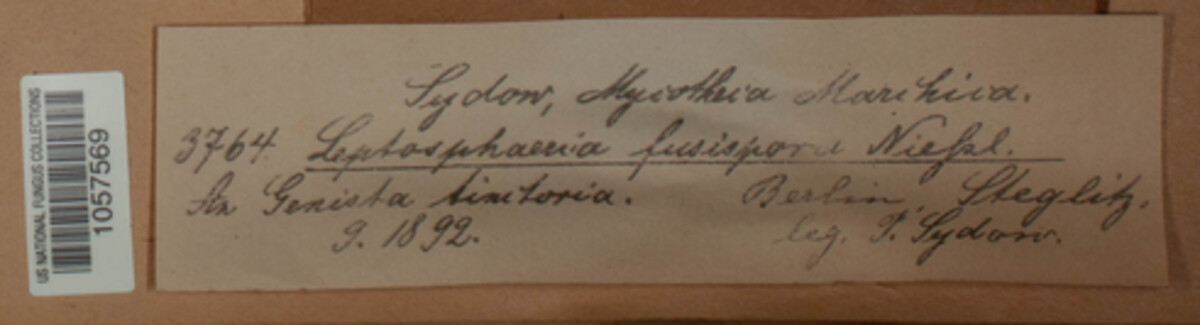 US NATIONAL FUNGUS COLLECTIONS
1057569
Sydow, Mycotheca Marchica.
3764. Leptosphaeria fusispora Nießl.
An Genista tinctoria. Berlin, Steglitz.
9. 1892. leg. P. Sydow.